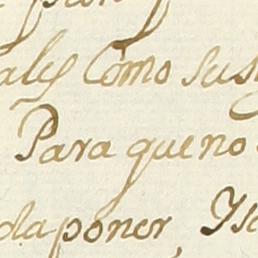 ales Como sus
Para queno
daponer, Ys